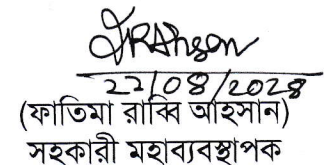 FRAhsan
22/08/2028
(ফাতিমা রাব্বি আহসান)
সহকারী মহাব্যবস্থাপক